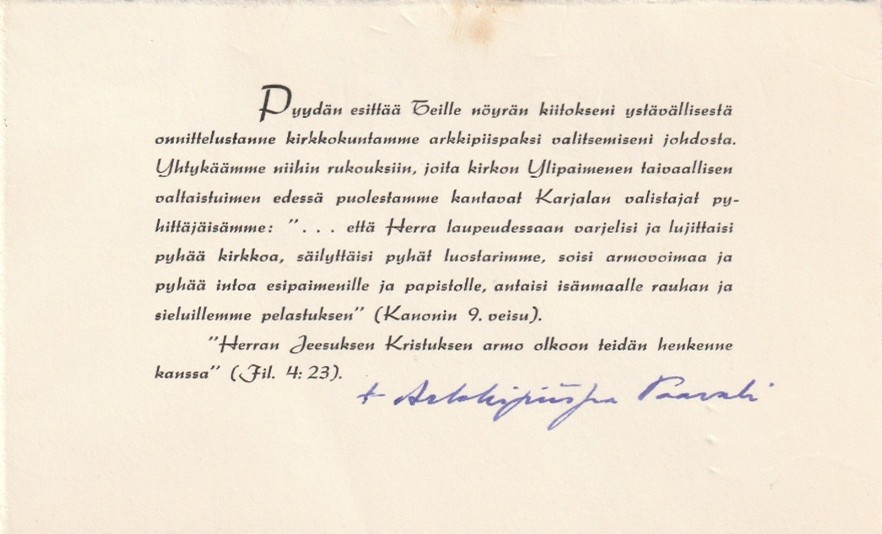 Pyydän esittää Teille nöyrän kiitokseni ystävällisestä
onnittelustanne kirkkokuntamme arkkipiispaksi valitsemiseni johdosta.
Yhtykäämme niihin rukouksiin, joita kirkon Ylipaimenen taivaallisen
valtaistuimen edessä puolestamme kantavat Karjalan valistajat py-
hittäjäisämme: "... että Herra laupeudessaan varjelisi ja lujittaisi
pyhää kirkkoa, säilyttäisi pyhät luostarimme, soisi armovoimaa ja
pyhää intoa esipaimenille ja papistolle, antaisi isänmaalle rauhan ja
sieluillemme pelastuksen" (Kanonin 9. veisu).
"Herran Jeesuksen Kristuksen armo olkoon teidän henkenne
kanssa" (Fil. 4: 23).
+ Arkkipiispa Paavali